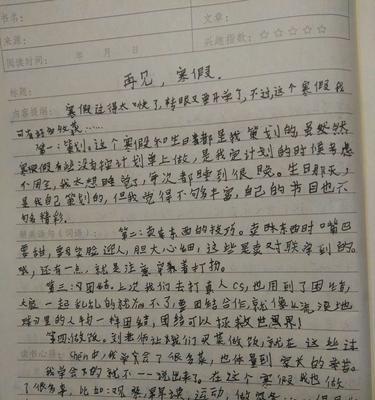 书名：
文章：
来源：
兴趣指数：☆☆☆☆☆
阅读时间： 年 月 日
标题：
再见，寒假.
内容提纲：
寒假过得太快了，转眼又要开学了，不过，这个寒假我
可有好多收获……
第一：策划。这个寒假和生日者都是我策划的，虽然
寒假有些没有按计划单上做，是我定计划的时候考虑
不周全，我太想睡觉了，每次都睡到很晚。生日那天，
是我自己策划的，但我觉得不够丰富，自己的节目也不
够精彩.
第二：卖东西的技巧。卖东西时口嘴巴
要甜，要笑脸迎人，胆大心细，这些是卖对联学到的。
哦，还有一点，就是注意穿着打扮。
第三：团结。上次我们去打真人CS，也用到了团结，
大家一起乱的就加不了，要团结合作，就像
的人物一样团结，团结可以拯救世界！
第四：做饭。刘老师让我们买菜做饭，就在这些过
中，我学会了很多菜，也体量到家长的辛苦。
我学会的就不一一说出来了。在这个寒假我也做
了很多事，比如：观察，运动，做